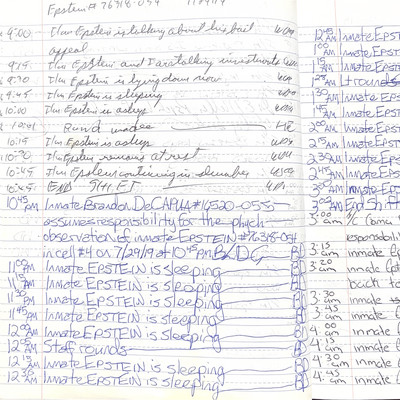 Epstein # 76318-054 7/29/19
9:00 Ihm Epstein is talking about his bail
appeal
9:15 Ihm Epstein and I are talking investments
9:30 Ihm Epstein is lying down now
9:45 Ihm Epstein is sleeping
10:00 Ihm Epstein is asleep
Round made
10:15 Ihm Epstein is asleep
10:30 Ihm Epstein remains at rest
10:45 Ihm Epstein continuing in slumber
10:45 END
10:45 PM Inmate Brandon DeCAPUA #16520-055
assumes responsibility for the psych
observation of inmate EPSTEIN #76318-054
in cell #4 on 7/29/19 at 10:45 PM
11:00 PM Inmate EPSTEIN is sleeping BD
11:15 PM Inmate EPSTEIN is sleeping BD
11:30 PM Inmate EPSTEIN is sleeping BD
11:45 PM Inmate EPSTEIN is sleeping BD
12:00 AM Inmate EPSTEIN is sleeping BD
AM Staff rounds BD
12:15 AM Inmate EPSTEIN is sleeping BD
12:30 AM Inmate EPSTEIN is sleeping BD
12:45 AM Inmate EPST
1:00 AM Inmate EPS
1:15 AM Inmate EPS
AM Lt rounds
1:30 AM Inmate EPS
1:45 AM Inmate EPS
2:00 AM Inmate EPS
2:15 AM Inmate EPS
2:30 AM Inmate EPS
2:45 AM Inmate EPS
3:00 AM Inmate EPS
3:00 AM End Shift
3:00 am I/C
responsibili
3:15 am inmate E
3:20 am inmate Ep
back to
3:30 am inmate
3:45 am inmate E
4:00 am inmate
4:15 am inmate E
4:30 am inmate
4:45 am inmate E